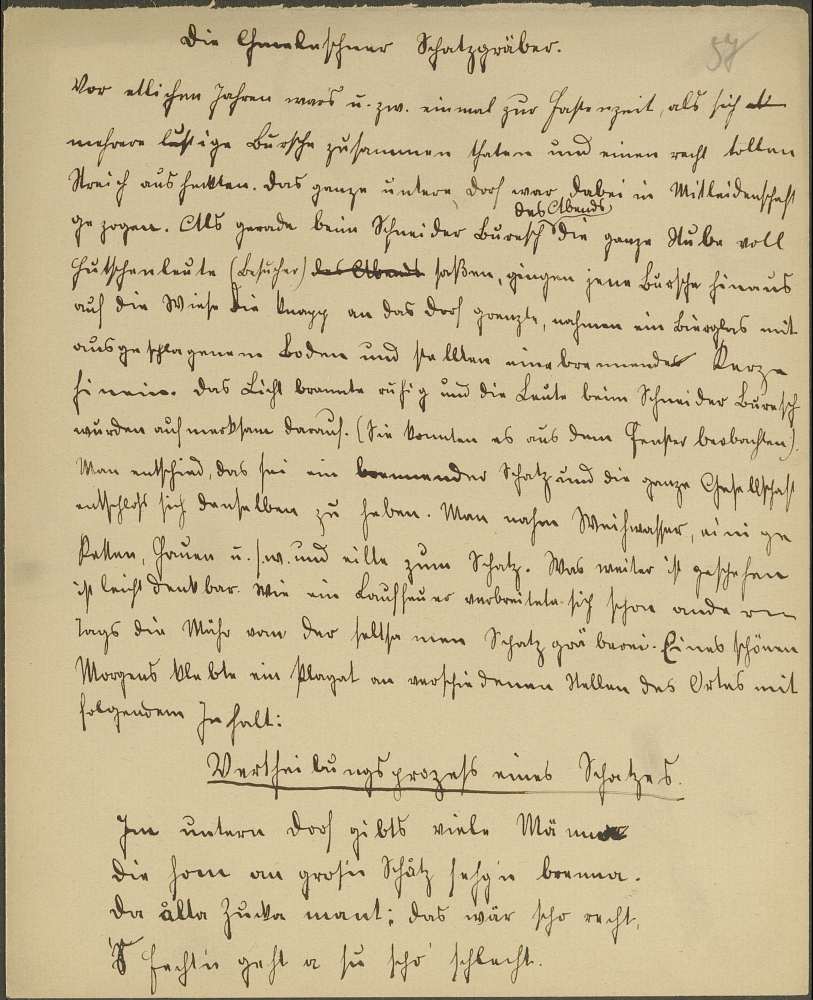 Die Chmeleschner Schatzgräber.
57
Vor etlichen Jahren wars u. zw. einmal zur Fastenzeit, als sich
mehrere lustige Bursche zusammen thaten und einen recht tollen
Streich ausheckten. Das ganze untere Dorf war dabei in Mitleidenschaft
gezogen. Als gerade beim Schneider Buresch des Abends die ganze Stube voll
Hutschenleute (Besucher) des Abends saßen, gingen jene Bursche hinaus
auf die Wiese die knapp an das Dorf grenzte, nahmen ein Bierglas mit
ausgeschlagenem Boden und stellten eine brennende Kerze
hinein. Das Licht brannte ruhig und die Leute beim Schneider Buresch
wurden aufmerksam darauf. (Sie konnten es aus dem Fenster beobachten).
Man entschied, das sei ein brennender Schatz und die ganze Gesellschaft
entschloß sich denselben zu heben. Man nahm Weihwasser, einige
Ketten, Hauen u. s. w. und eilte zum Schatz. Was weiter ist geschehen
ist leicht denkbar. Wie ein Lauffeuer verbreitete sich schon anderen
Tags die Mähr von der seltsamen Schatzgräberei. Eines schönen
Morgens klebte ein Plagat an verschiedenen Stellen des Ortes mit
folgendem Inhalt:
Vertheilungsprozess eines Schatzes.
Im untern Dorf gibts viele Männer
Die hom an groß'n Schåtz sehg'n brenna.
Da ålta Zucka mant: das wär scho recht,
'S Fecht'n geht a su scho' schlecht.